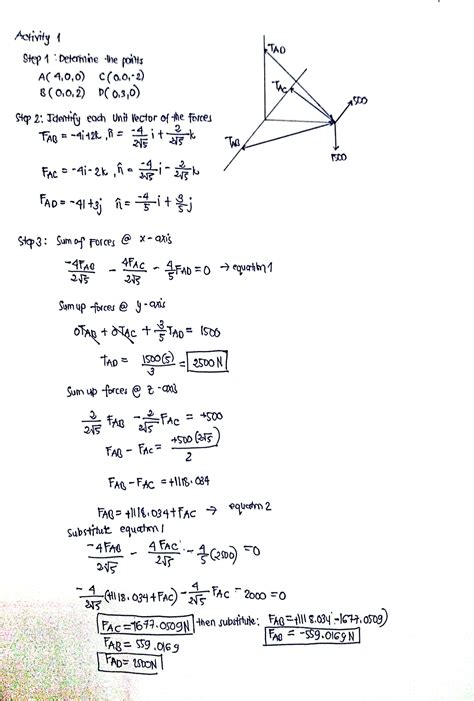 Activity 1
Step 1: Determine the points
A(4,0,0) C(0,0,-2)
B(0,0,2) D(0,3,0)
Step 2: Identify each Unit Vector of the forces
TAB = -4i+2k, n̂ = -4/2√5 i + 2/2√5 k
FAC = -4i-2k, n̂ = -4/2√5 i - 2/2√5 k
FAD = -4i+3j n̂ = -4/5 i + 3/5 j
TAD
TAC
TAB
500
1500
Step 3: Sum of Forces @ x-axis
-4FAB/2√5 - 4FAC/2√5 - 4/5 FAD = 0 → equation 1
Sum up forces @ y-axis
0TAB + 0TAC + 3/5 TAD = 1500
TAD = 1500(5)/3 = 2500N
Sum up forces @ z-axis
2/2√5 FAB - 2/2√5 FAC = +500
FAB - FAC = +500(2√5)/2
FAB - FAC = +1118.034
FAB = +1118.034 + FAC → equation 2
Substitute equation 1
-4FAB/2√5 - 4FAC/2√5 - 4/5 (2500) = 0
-4/2√5 (+1118.034 + FAC) - 4/2√5 FAC - 2000 = 0
FAC = -1677.0509N then substitute: FAB = +1118.034 - 1677.0509)
FAB = 559.0169 FAB = -559.0169N
FAD = 2500N